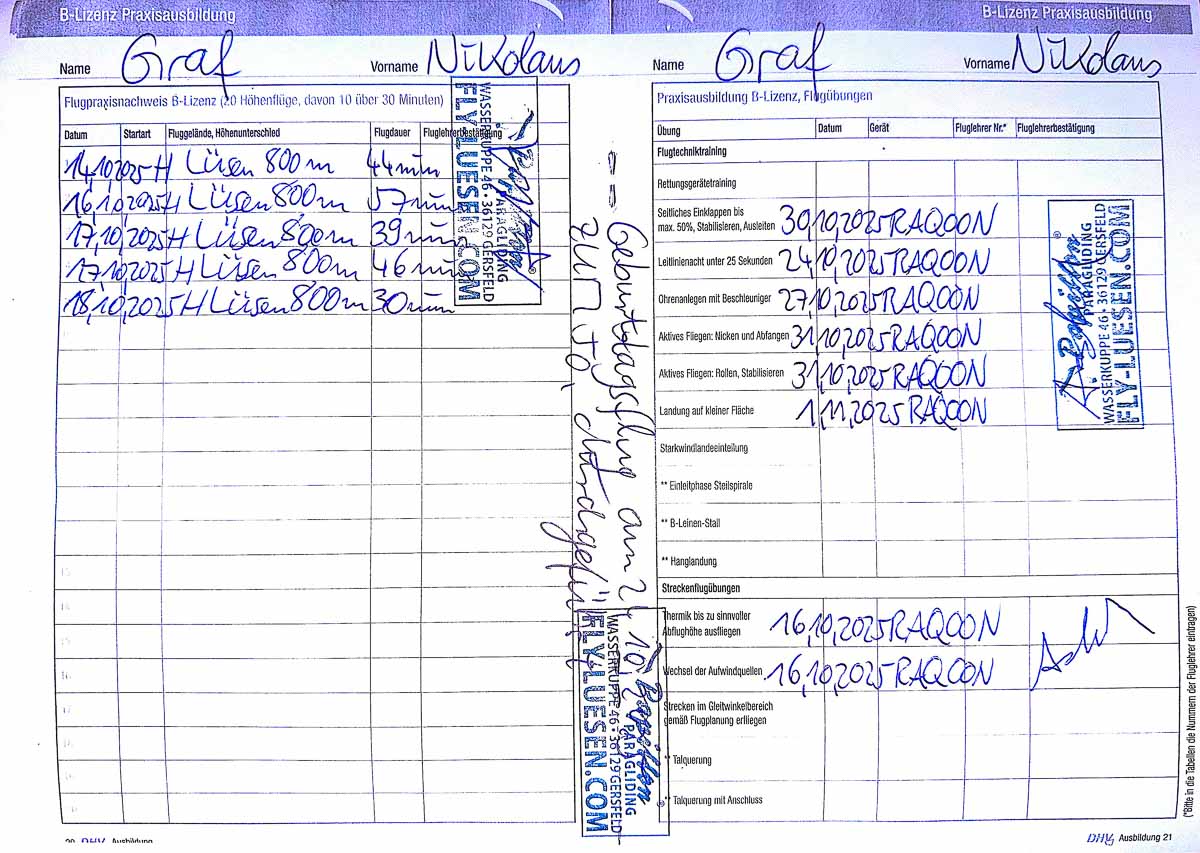 B-Lizenz Praxisausbildung
Name Graf Vorname Nikolaus
Flugpraxisnachweis B-Lizenz (20 Höhenflüge, davon 10 über 30 Minuten)
Datum Startart Fluggelände, Höhenunterschied Flugdauer Fluglehrerbestätigung
14,10,2025 H Lüsen 800m 44min
16,10,2025 H Lüsen 800m 57min
17,10,2025 H Lüsen 800m 39min
17,10,2025 H Lüsen 800m 46min
18,10,2025 H Lüsen 800m 30min
PARAGLIDING
WASSERKUPPE 46 • 36129 GERSFELD
FLY-LUESEN.COM
15
16
17
18
DHV Ausbildung
-- Geburtstagsflug am 24,10,2
zum 50,
PARAGLIDING
WASSERKUPPE 46 • 36129 GERSFELD
FLY-LUESEN.COM
B-Lizenz Praxisausbildung
Name Graf Vorname Nikolaus
Praxisausbildung B-Lizenz, Flugübungen
Übung Datum Gerät Fluglehrer Nr.* Fluglehrerbestätigung
Flugtechniktraining
Rettungsgerätetraining
Seitliches Einklappen bis
max. 50%, Stabilisieren, Ausleiten 30,10,2025 RAQOON
Leitlinienacht unter 25 Sekunden 24,10,2025 RAQOON
Ohrenanlegen mit Beschleuniger 27,10,2025 RAQOON
Aktives Fliegen: Nicken und Abfangen 31,10,2025 RAQOON
Aktives Fliegen: Rollen, Stabilisieren 31,10,2025 RAQOON
Landung auf kleiner Fläche 1,11,2025 RAQOON
PARAGLIDING
WASSERKUPPE 46 • 36129 GERSFELD
FLY-LUESEN.COM
Starkwindlandeeinteilung
** Einleitphase Steilspirale
** B-Leinen-Stall
** Hanglandung
Streckenflugübungen
Thermik bis zu sinnvoller
Abflughöhe ausfliegen 16,10,2025 RAQOON
Wechsel der Aufwindquellen 16,10,2025 RAQOON
Strecken im Gleitwinkelbereich
gemäß Flugplanung erfliegen
** Talquerung
** Talquerung mit Anschluss
(*Bitte in die Tabellen die Nummern der Fluglehrer eintragen)
DHV Ausbildung 21